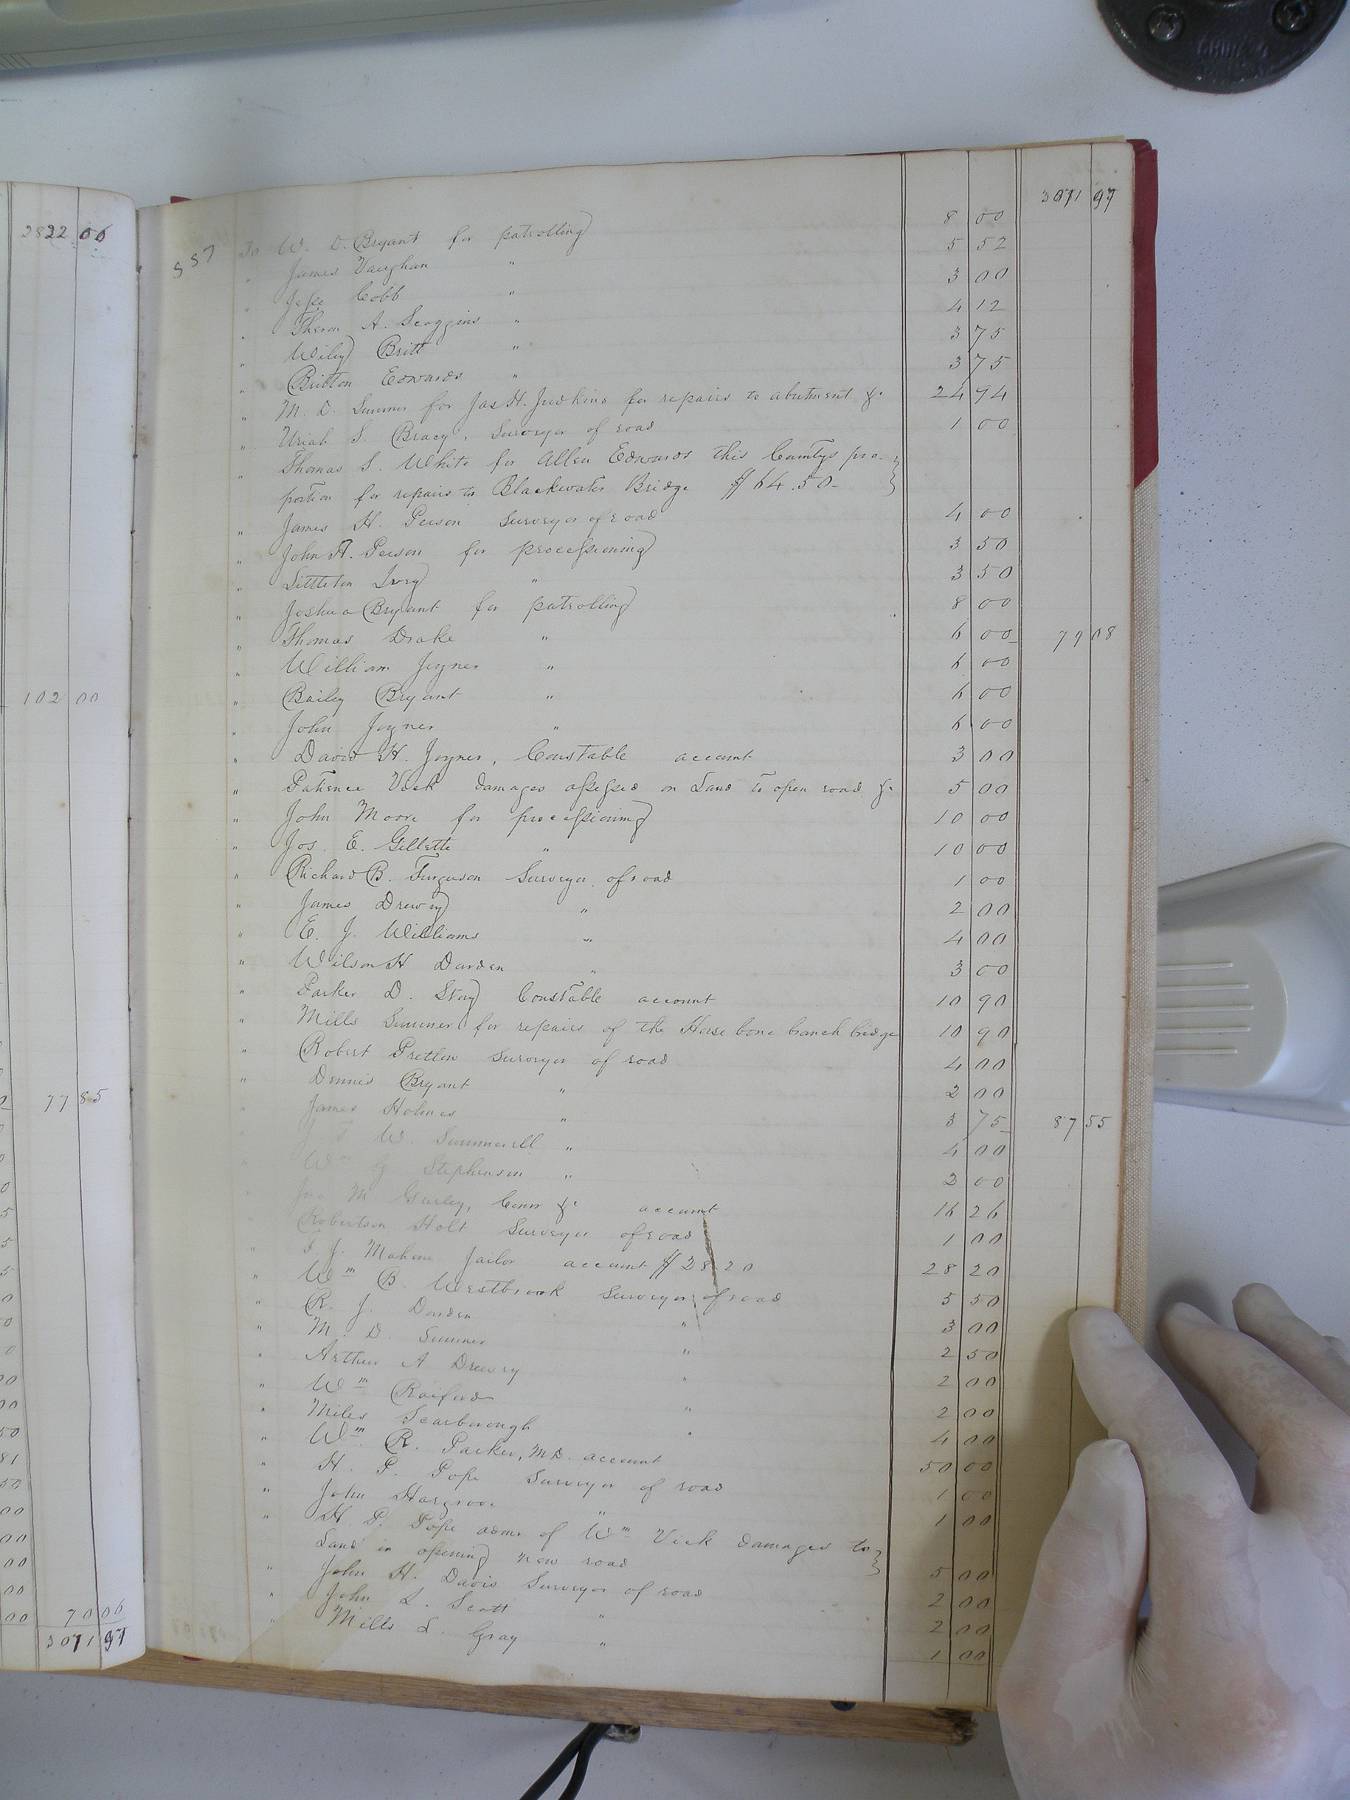 2822 06
102 00
77 85
70 06
3071 97
3071 97
557 To W. D. Bryant for patrolling 8 00
" James Vaughan " 5 52
" Jesse Cobb " 3 00
" Theron A. Scoggins " 4 12
" Wiley Britt " 3 75
" Britton Edwards " 3 75
" M. D. Sumner for Jas H. Judkins for repairs to abutment &c 24 94
" Uriah S. Bracy, Surveyor of road 1 00
" Thomas S. White for Allen Edwards this Countys pro-
portion for repairs to Blackwater Bridge $64.50-
" James H. Person Surveyor of road 4 00
" John A. Person for processioning 3 50
" Littleton Ivory " 3 50
" Joshua Bryant for patrolling 8 00
" Thomas Drake " 6 00 79 08
" William Joyner " 6 00
" Bailey Bryant " 6 00
" John Joyner " 6 00
" David H. Joyner, Constable account 3 00
" Patience Vick damages assessed on Land to open road &c 5 00
" John Moore for processioning 10 00
" Jos. E. Gillette " 10 00
" Richard B. Ferguson Surveyor of road 1 00
" James Drewry " 2 00
" E. J. Williams " 4 00
" Wilson H Darden " 3 00
" Parker D. Story Constable account 10 90
" Mills Sumner for repairs of the Horse bone branch bridge 10 90
" Robert Pretlow Surveyor of road 4 00
" Dennis Bryant " 2 00
" James Holmes " 3 75 87 55
W. Summerell " 4 00
Wm G. Stephenson " 2 00
" M Gurley, Comr &c account 16 26
Robertson Holt Surveyor of road 1 00
" J. Mahone Jailor account $28 20 28 20
" Wm B. Westbrook Surveyor of road 5 50
" R. J. Darden " 3 00
" M. D. Sumner " 2 50
" Arthur A Drewry " 2 00
" Wm Raiford " 2 00
" Miles Scarborough " 4 00
" Wm R. Parker, M.D. account 50 00
" H. P. Pope Surveyor of road 1 00
" John Hargrove " 1 00
" H. P. Pope admr of Wm Vick damages to
Land in opening new road 5 00
" John H. Davis Surveyor of road 2 00
" John L. Scott " 2 00
" Mills L. Gray " 1 00